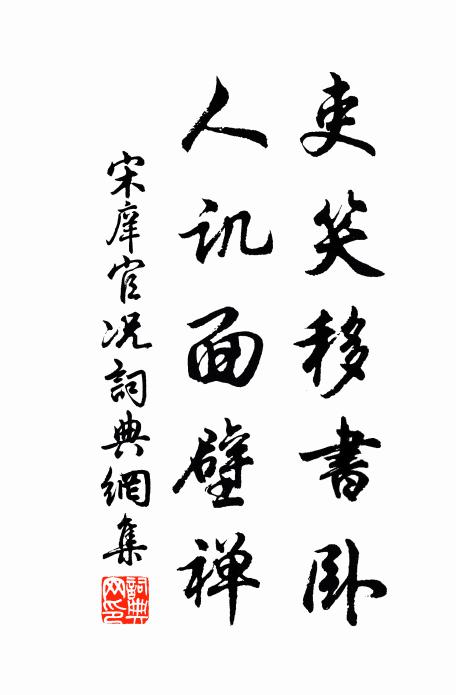 吏笑移書卧
人讥面壁禅
宋庠官况詞典網集
詞典
网印